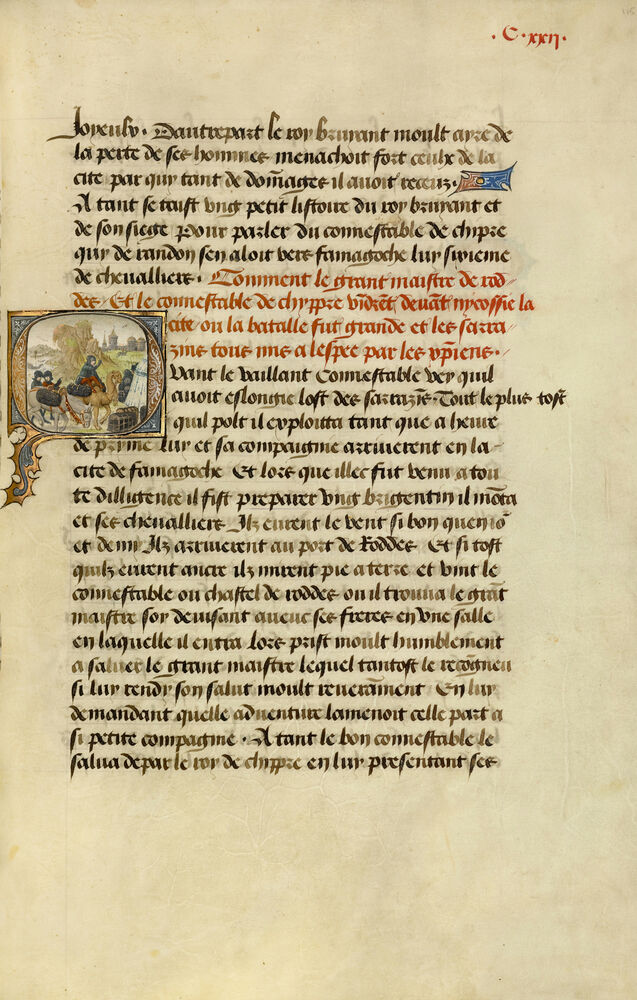 .C.xxij.
Joyeulx. Dautrepart le roy bruyant moult ayre de
la perte de ses hommes menachoit fort ceulx de la
cite par quy tant de dōmages il auoit receuz.
A tant se taist ung petit listoire du roy bruyant et
de son siege Pour parler du connestable de chipre
quy de randon sen aloit vers famagoche luy sixieme
de chevalliers. Comment le grant maistre de rod-
des Et le connestable de chyppre vindrēt deuāt nycossie la
cite ou la bataille fut grande et les sarra-
zins tous mis a lespee par les xp̄iens.
Quant le vaillant Connestable vey quil
auoit eslongie lost des sarrazīs. Tout le plus tost
quil polt il exploitta tant que a heure
de pryme luy et sa compaignie arriuerent en la
cite de famagoche Et lors que illec fut venu a tou
te dilligence il fist preparer ung brigentin il mōta
et ses chevalliers Ilz eurent le vent si bon quen
et demy Ilz arriuerent au port de Roddes Et si tost
quilz eurent ancre ilz mirent pie a terre et vint le
connestable ou chastel de roddes ou il trouua le grāt
maistre soy deuisant auecuc ses freres en vne salle
en laquelle il entra Lors prist moult humblement
a saluer le grant maistre lequel tantost le recōgneu
si luy rendy son salut moult reueramment En luy
demandant quelle aduenture lamenoit celle part a
si petite compagnie. A tant le bon connestable le
salua depar le roy de chyppre en luy presentant ses